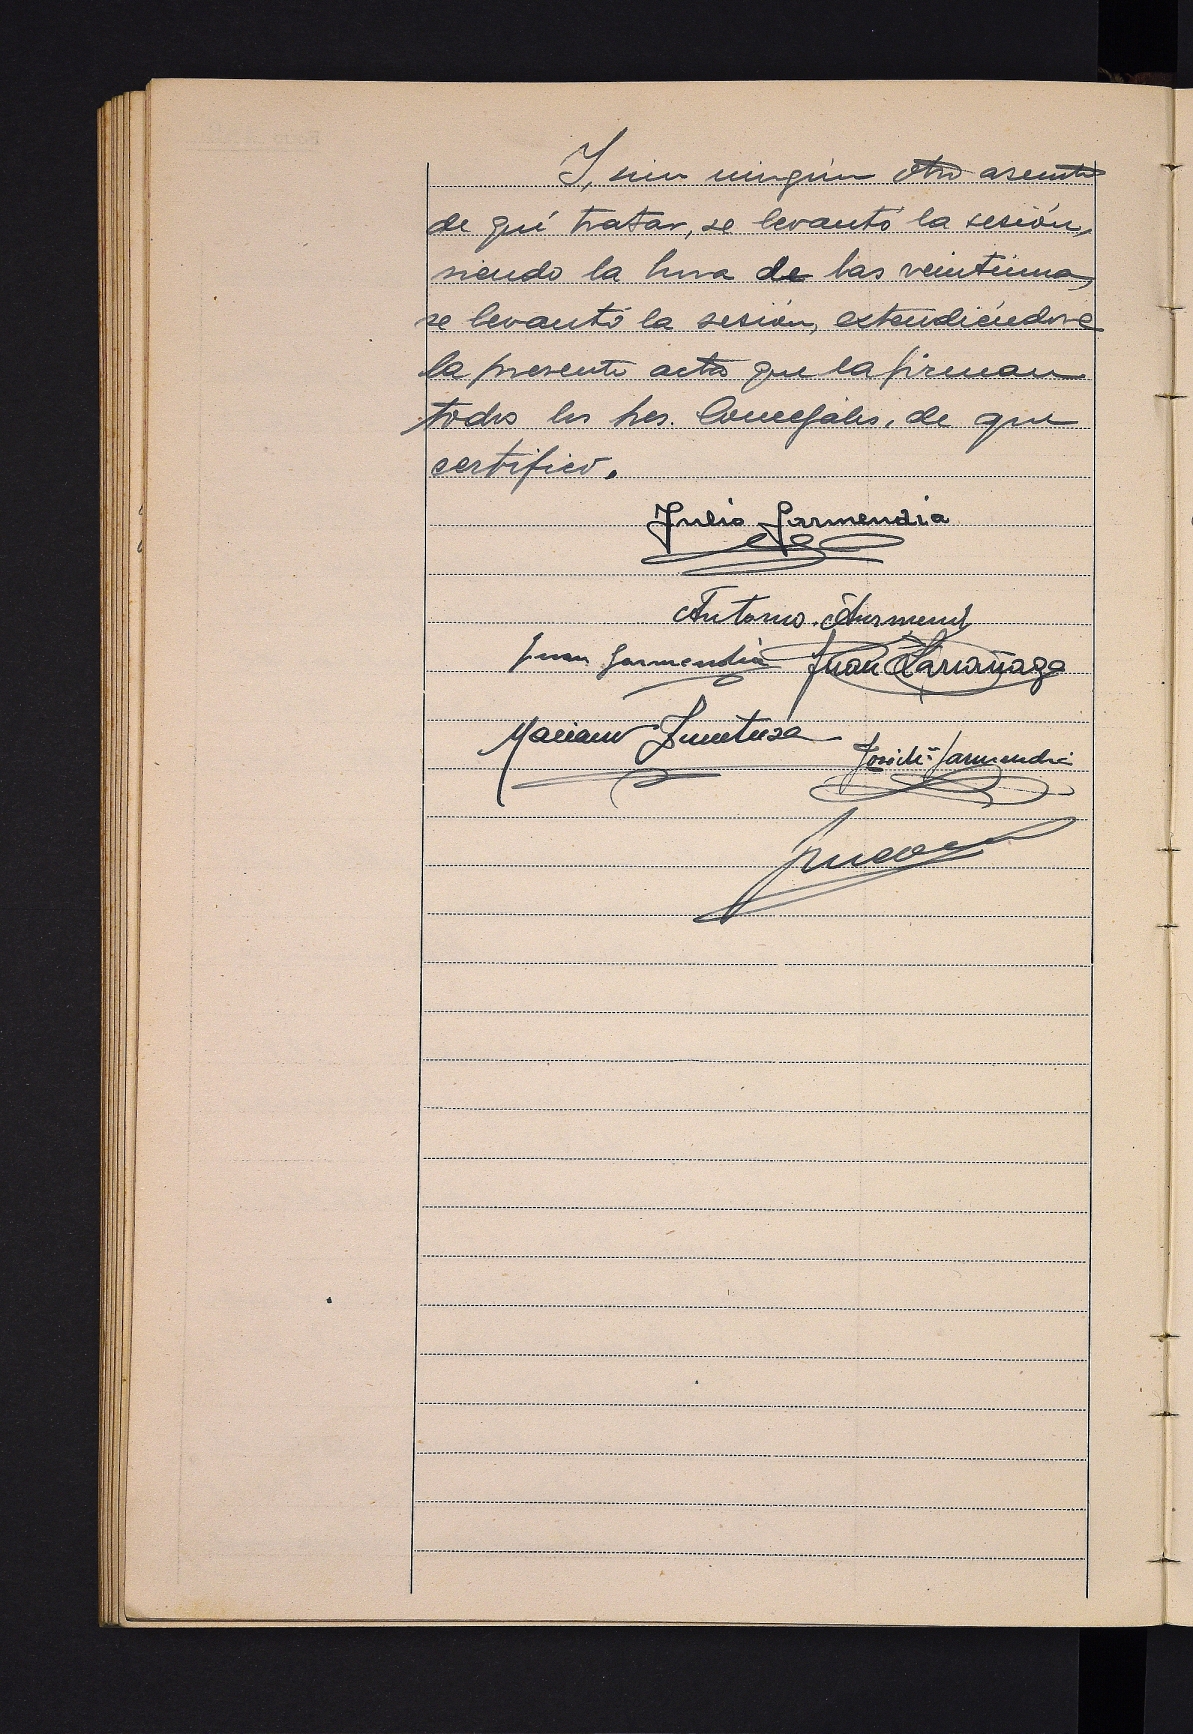 Y, sin ningún otro asunto
de qué tratar, se levantó la sesión,
siendo la hora de las veintiuna,
se levantó la sesión, extendiéndose
la presente acta que la firman
todos los Sres. Concejales, de que
certifico.
Julio Garmendia
Antonio
Juan Garmendia Juan Larrañaga
Mariano
José Mª Garmendia